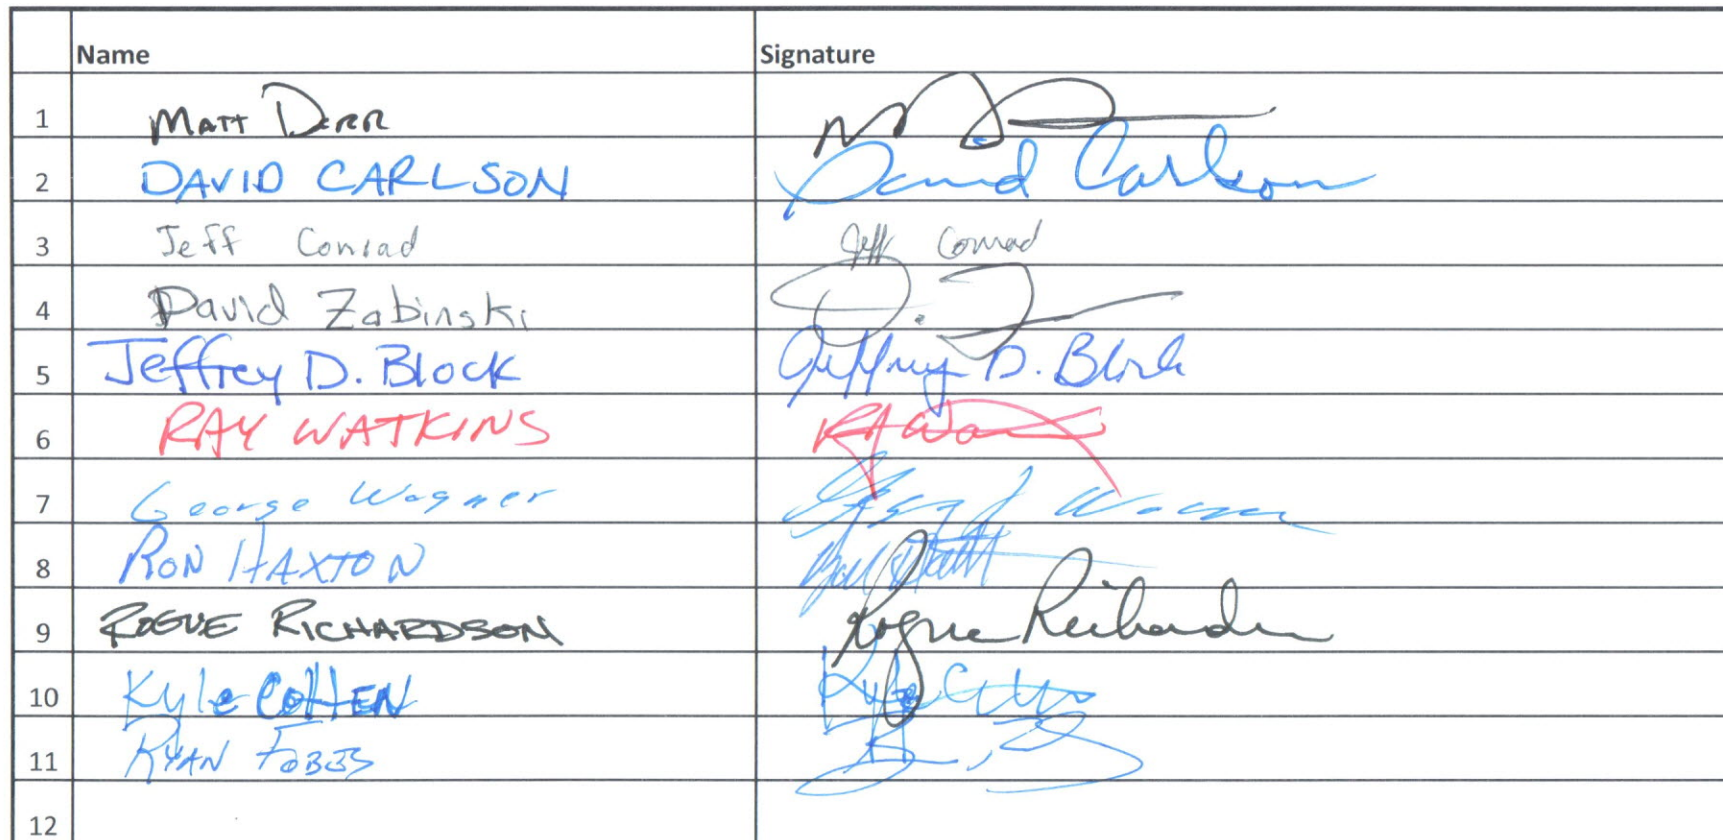 Name Signature
1 Matt Derr
2 DAVID CARLSON David Carlson
3 Jeff Conrad Jeff Conrad
4 David Zabinski
5 Jeffrey D. Block Jeffrey D. Block
6 RAY WATKINS
7 George Wagner
8 RON HAXTON
9 ROGUE RICHARDSON Rogue Richardson
10 Kyle COHEN Kyle
11 RYAN FOBES
12